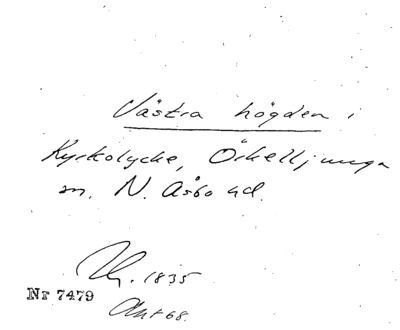 Västra högden i
Kyrkolycke, Örkelljunga
sn. N. Åsbo hd.
1835
Nr 7479
Akt 68.